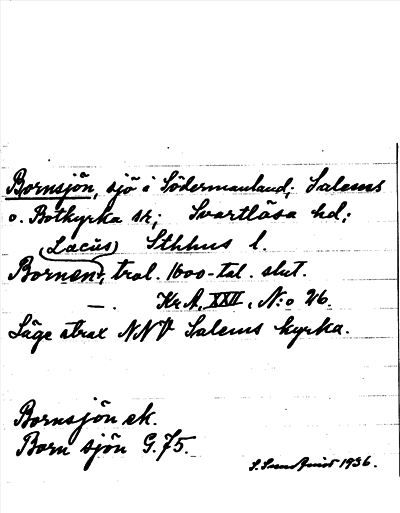 Bornsjön, sjö i Södermanland; Salems
o. Botkyrka sr; Svartlösa hd;
(Lacus) Sthlms l.
Bornsn, trol. 1600-tal. slut.
—. Kr A, XXII, N:o 26.
Läge strax NNV Salems kyrka.
Bornsjön ek.
Born sjön G. 75.
S. Sundquist 1936.